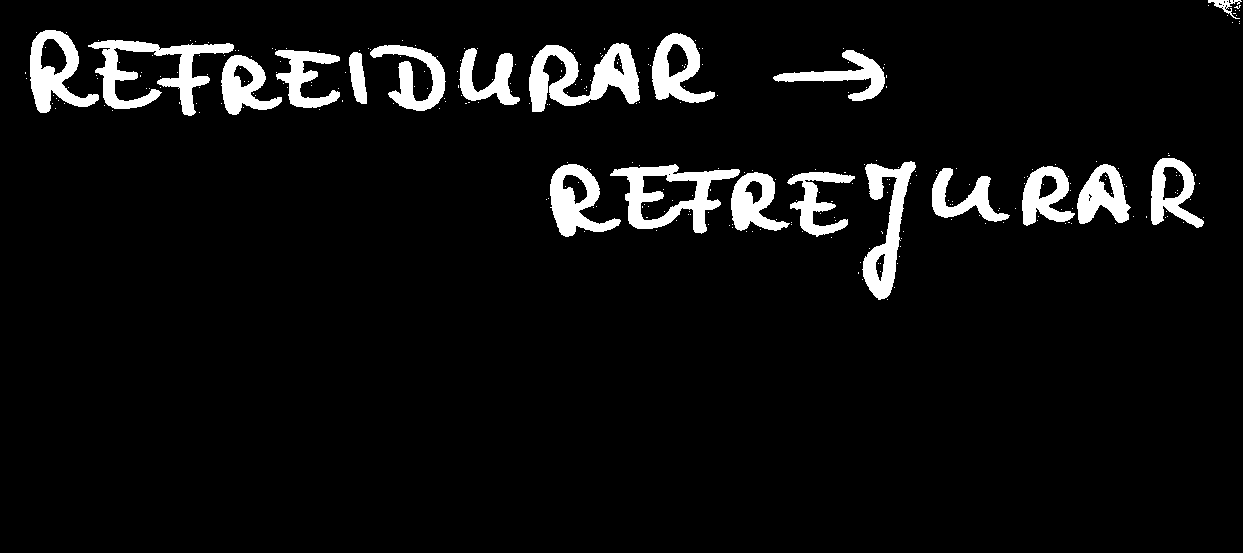 REFREIDURAR →
REFREJURAR